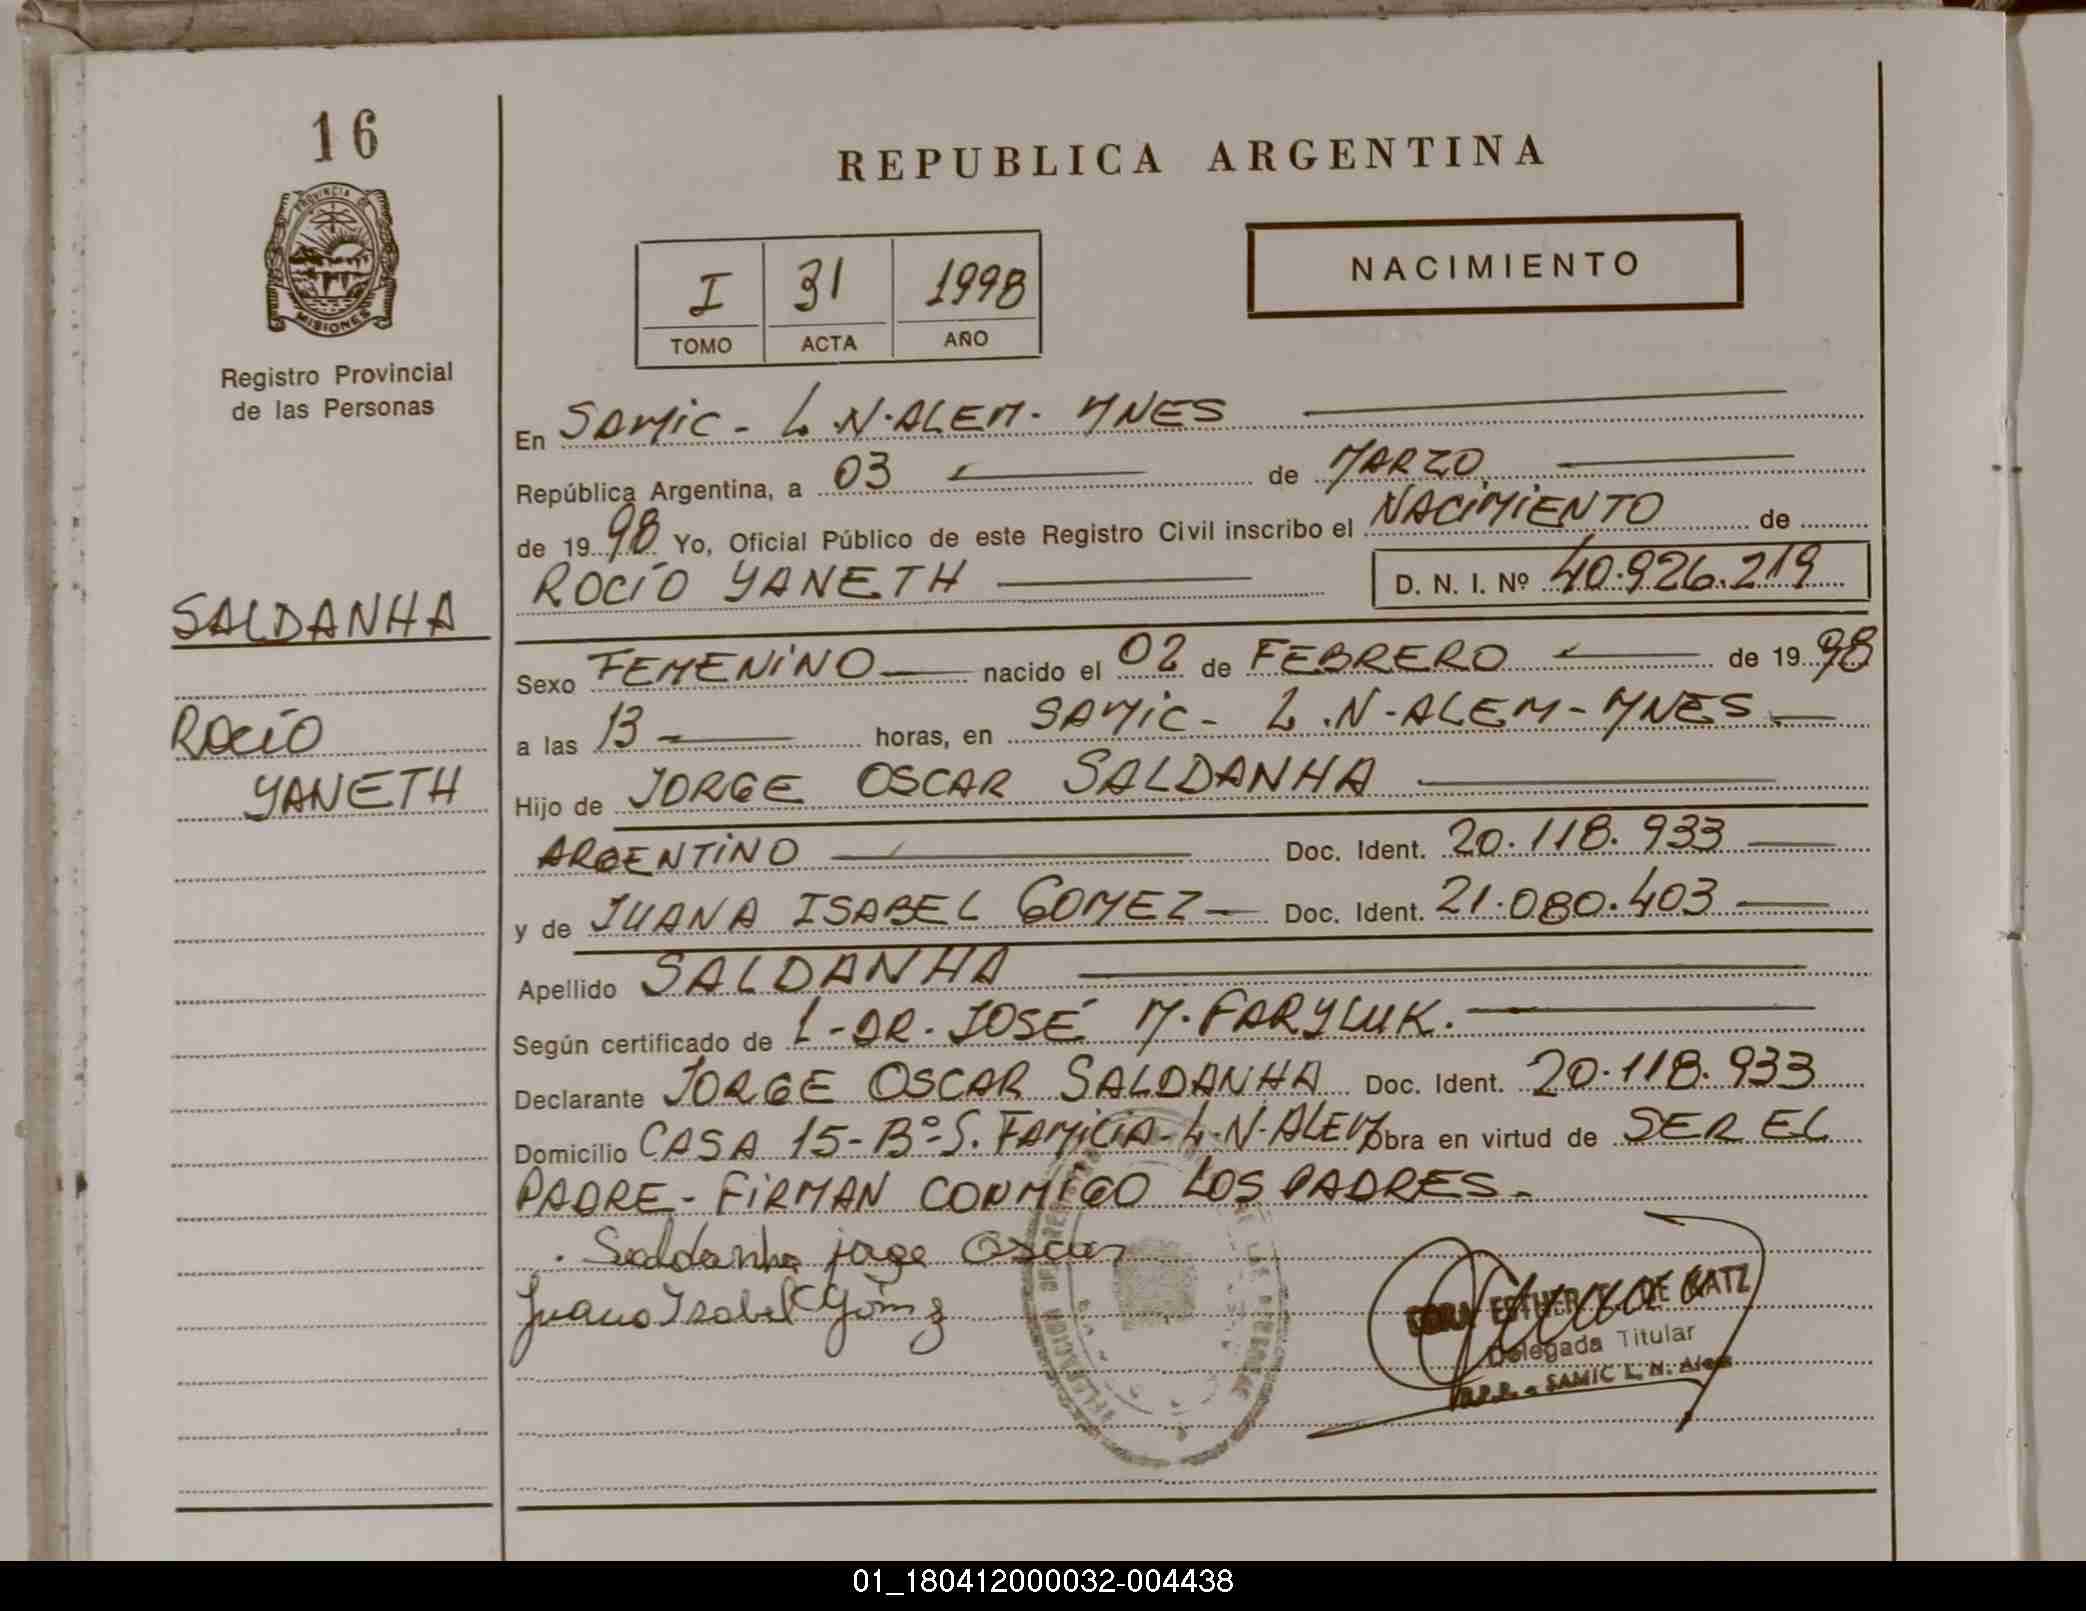 16
PROVINCIA DE
MISIONES
Registro Provincial
de las Personas
SALDANHA
ROCÍO
YANETH
REPUBLICA ARGENTINA
I 31 1998
TOMO ACTA AÑO
NACIMIENTO
En SAMIC - L.N.ALEM - MNES
República Argentina, a 03 de MARZO
de 1998 Yo, Oficial Público de este Registro Civil inscribo el NACIMIENTO de
ROCÍO YANETH D. N. I. Nº 40.926.219
Sexo FEMENINO nacido el 02 de FEBRERO de 1998
a las 13 horas, en SAMIC - L.N-ALEM - MNES
Hijo de JORGE OSCAR SALDANHA
ARGENTINO Doc. Ident. 20.118.933
y de JUANA ISABEL GOMEZ Doc. Ident. 21.080.403
Apellido SALDANHA
Según certificado de L-DR. JOSÉ M. FARYLUK.
Declarante JORGE OSCAR SALDANHA Doc. Ident. 20.118.933
Domicilio CASA 15 - Bº-S. FAMILIA - L-N-ALEM Obra en virtud de SER EL
PADRE - FIRMAN CONMIGO LOS PADRES.
Saldanha jorge Oscar
Juana Isabel Gómez
ESTHER DE KATZ
Delegada Titular
R.P.P. - SAMIC L. N. Alem
01_180412000032-004438